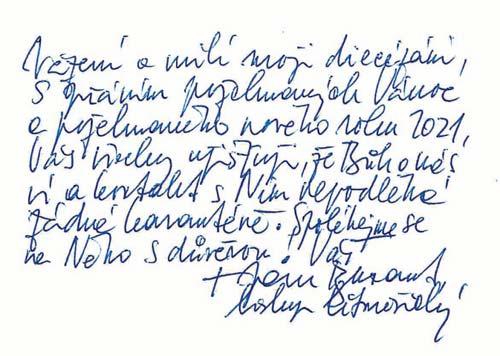 Vážení a milí moji diecézáni,
s přáním požehnaných Vánoc
a požehnaného nového roku 2021,
Vás všechny ujišťuji, že Bůh o nás
ví a kontakt s Ním nepodléhá
žádné karanténě. Spoléhejme se
na Něho s důvěrou! Váš
+ Jan Baxant
biskup litoměřický